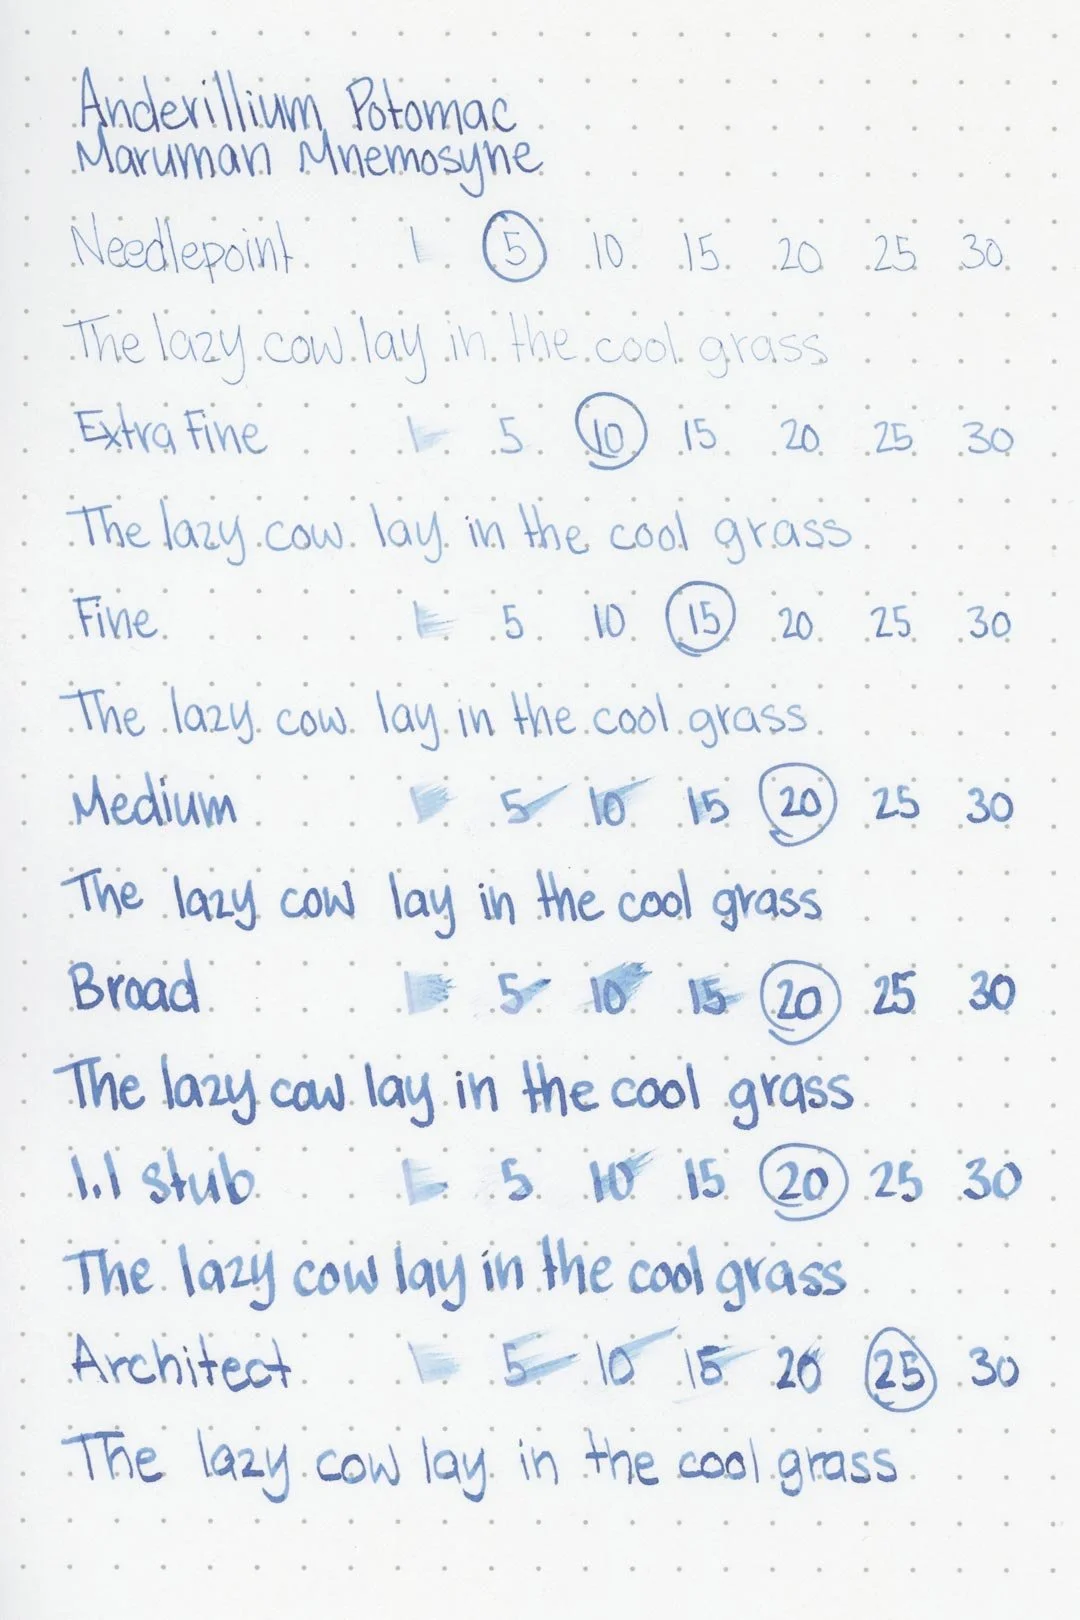 Anderillium Potomac
Maruman Mnemosyne
Needlepoint 1 5 10 15 20 25 30
The lazy cow lay in the cool grass
Extra Fine 1 5 10 15 20 25 30
The lazy cow lay in the cool grass
Fine 1 5 10 15 20 25 30
The lazy cow lay in the cool grass
Medium 1 5 10 15 20 25 30
The lazy cow lay in the cool grass
Broad 1 5 10 15 20 25 30
The lazy cow lay in the cool grass
1.1 stub 1 5 10 15 20 25 30
The lazy cow lay in the cool grass
Architect 1 5 10 15 20 25 30
The lazy cow lay in the cool grass